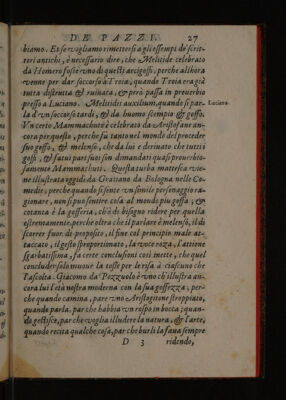 DE PAZZI. 27
biamo. Et se vogliamo rimettersi a gli essempi de' scrit-
tori antichi, è necessario dire, che Melitide celebrato
da Homero fosse uno di questi arcigoffi, perche all'hora
venne per dar soccorso à Troia, quando Troia era già
tutta distrutta & ruinata, & però passa in proverbio
presso a Luciano. Melitidis auxilium, quando si par-
Luciano.
la d'un soccorso tardi, & da huomo scempio & goffo.
Un certo Mammachuto è celebrato da Aristofane an-
cora per questo, perche fù tanto nel mondo del proceder
suo goffo, & melenso, che da lui è derivato che tutti i
goffi, & fatui pari suoi son dimandati quasi proverbio-
samente Mammachuti. Questa turba materiosa vie-
ne illustrata oggidì da Gratiano da Bologna nelle Co-
medie, perche quando si sente un simile personaggio ra-
gionare, non si può sentire cosa al mondo più goffa, &
cotanta è la gofferia, ch'è di bisogno ridere per quella
estrenamente, perche oltra che il parlare è melenso, il di
scorrer fuor di proposito, il fine col principio male at-
taccato, il gesto sproportionato, la voce roza, l'attione
sgarbatissima, fa certe conclusioni così mette, che quel
concluder solo muove la tosse per le risa à ciascuno che
l'ascolta. Giacomo da Pozzuolo è uno ch'illustra an-
cora lui l'età nostra moderna con la sua goffezza, per-
che quando camina, pare uno Aristogitone stroppiato,
quando parla, par che habbia un rospo in bocca; quan-
do gestisce, par che voglia illudere la natura, & l'arte,
quando recita qualche cosa, par che burli la sua sempre
D 3 ridendo,